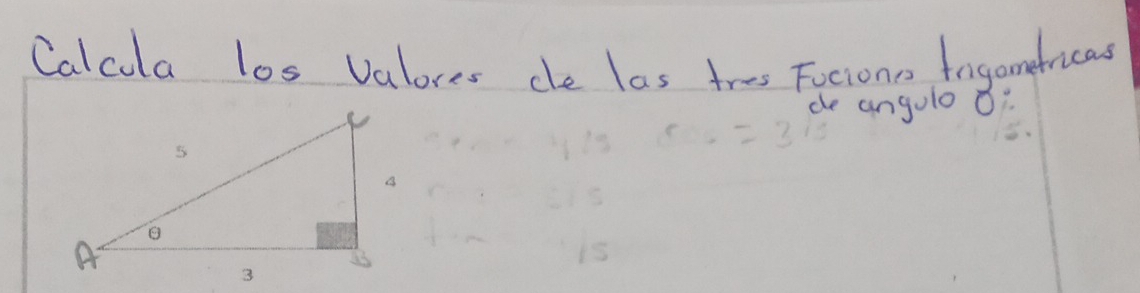 Calcula los Valores de las tres Fucions trigometricas
de angulo θ:
C
5
4
θ
A
B
3